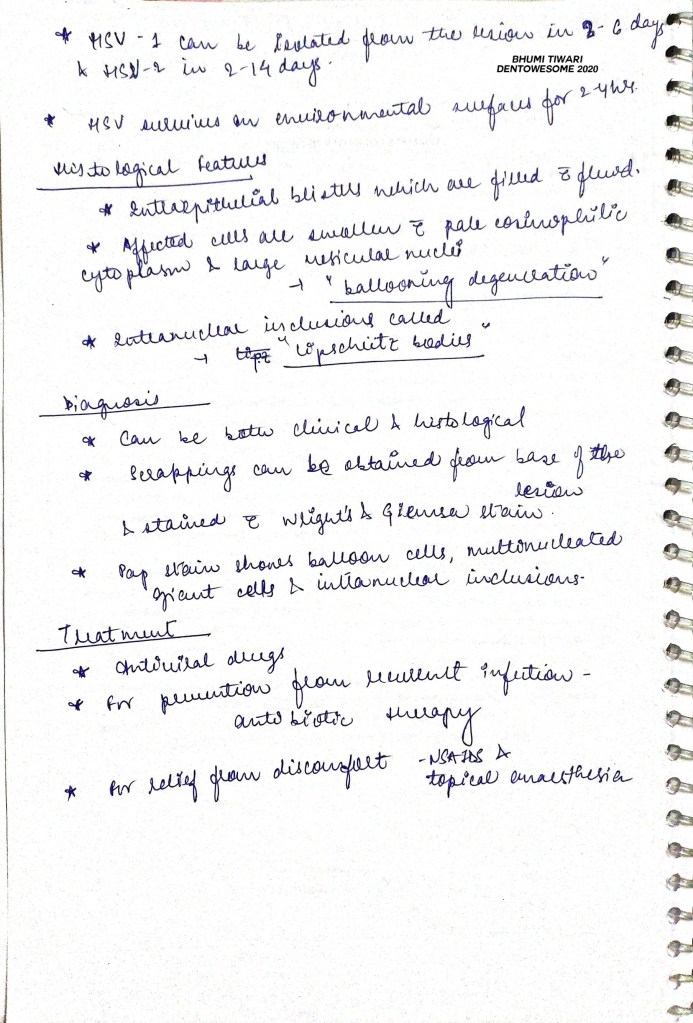 * HSV-1 can be isolated from the lesion in 2-6 days
& HSV-2 in 2-14 days.
BHUMI TIWARI
DENTOWESOME 2020
* HSV survives on environmental surfaces for 2-4hrs.
Histological Features
* Intraepithelial blisters which are filled c̄ fluid.
* Affected cells are swollen c̄ pale eosinophilic
cytoplasm & large vesicular nuclei
→ "ballooning degeneration"
* Intranuclear inclusions called
→ "Lipschutz bodies"
Diagnosis
* Can be both clinical & histological
* Scrappings can be obtained from base of the
lesion
& stained c̄ Wright's & Giemsa stain.
* Pap stain shows balloon cells, multinucleated
giant cells & intranuclear inclusions.
Treatment
* Antiviral drugs
* For prevention from recurrent infection -
antibiotic therapy
* For relief from discomfort - NSAIDS &
topical anaesthesia